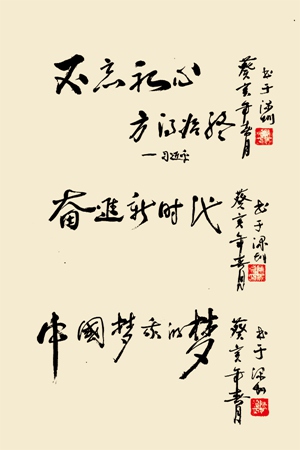 不忘初心
方得始终
—习近平
书于深圳
癸亥年春月
奋進新时代
书于深圳
癸亥年春月
中國梦我的梦
书于深圳
癸亥年春月